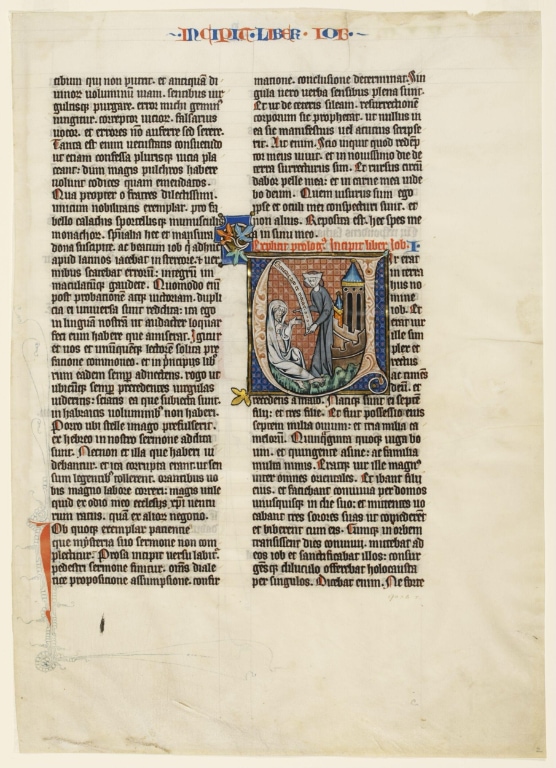 INCIPIT · LIBER · IOB ·
cibum qui non perit. et antiquā di
uinor voluminū uiam. sentibus uir
gultisq; purgare. error michi geminꝰ
infligitur. correptor uicior. falsarius
uocor. et errores nō auferre sed serere.
Tanta est enim uetustatis consuetudo
ut etiam confessa plurisq; uicia pla
ceant: dum magis pulchros habere
uolunt codices quam emendatos.
Qua propter o fratres dilectissimi.
unicum nobilitatis exemplar. pro fla
bello calathis sportellisq; munuscula
monachor. spiritalia hec et mansura
dona suscipite. ac beatum iob q̄ adhuc
apud latinos iacebat in stercore. et uer
mibus scatebat errorū: integrū in
maculatūq; gaudete. Quomodo enī
post probationē atq; uictoriam. dupli
cia ei uniuersa sunt reddita: ita ego
in lingua nostrā ut audacter loquar
feci eum habere que amiserat. Igitur
et uos et unūquēq; lectorē solita pre
fatione commoneo. et in principiis lib
rorum eadem semp adnectens. rogo ut
ubicūq; semp precedentes uirgulas
uideritis: sciatis ea que subiecta sunt
in hebraicis uoluminibꝰ non haberi.
Porro ubi stelle imago prefulserit.
ex hebreo in nostro sermone addita
sunt. Necnon et illa que haberi ui
debantur. et ita corrupta erant. ut sen
sum legentibꝰ tollerent. orantibus uo
bis magno labore correxi: magis utile
quid ex ocio meo ecclesiis xp̄i ventu
rum ratus. quā ex alior negotio.
Ob quoq; exemplar patientie
que mysteria suo sermone non com
plectitur: Prosa incipit versu labitꝰ.
pedestri sermone finitur. oms̄ diale
tice propositione assumptione. confir
matione. conclusione determinat. Sin
gula uero verba sensibus plena sunt.
Et ut de ceteris sileam. resurrectionē
corporum sic prophetat. ut nullus in
ea sic manifestius uel cautius scripse
rit. Ait enim. Scio inquit quod redēp
tor meus uiuit. et in nouissimo die de
terra surrecturus sum. Et rursus circū
dabor pelle mea: et in carne mea uide
bo deum. Quem uisurus sum ego
ipse et oculi mei conspecturi sunt. et
non alius. Reposita est hec spes me
a in sinu meo.
Explicit prologꝰ. Incipit liber Iob. I.
Vir erat
in terra
hus no
mine
iob. Et
erat uir
ille sim
plex et
rectus
ac timēs
deū. et
recedens a malo. Natiq; sunt ei septē
filii: et tres filie. Et fuit possessio eius
septem milia ouium: et tria milia ca
melorū. Quinq̄uginta quoq; iuga bo
um. et quingente asine: ac familia
multa nimis. Eratq; uir ille magnꝰ
inter omnes orientales. Et ibant filii
eius. et faciebant conuiuia per domos
unusquisq; in die suo: et mittentes uo
cabant tres sorores suas ut comederēt
et biberent cum eis. Cumq; in orbem
transissent dies conuiuii. mittebat ad
eos iob et sanctificabat illos: consur
gēsq; diluculo offerebat holocausta
per singulos. Dicebat enim. Ne forte